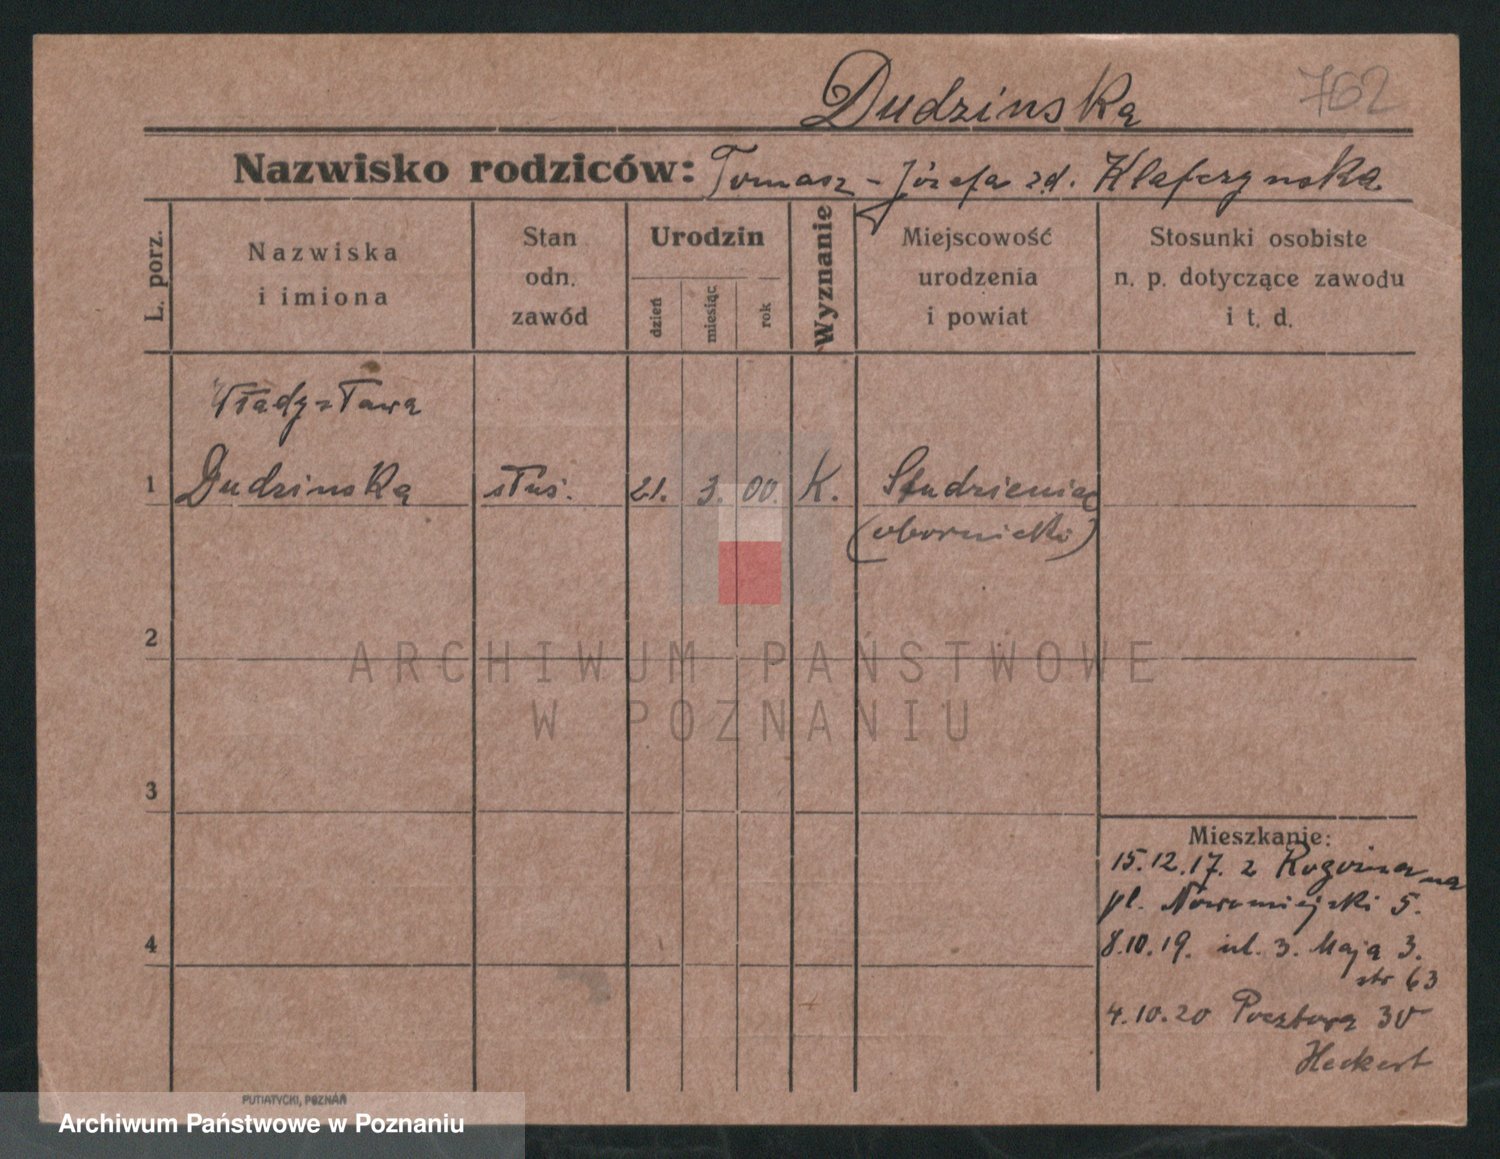 Dudzinska 762
Nazwisko rodziców: Tomasz - Józefa zd. Klapczynska
L. porz.
Nazwiska
i imiona
Stan
odn.
zawód
Urodzin
dzień
miesiąc
rok
Wyznanie
Miejscowość
urodzenia
i powiat
Stosunki osobiste
n. p. dotyczące zawodu
i t. d.
Władysława
1 Dudzinska służ. 21. 3. 00. K. Studzieniec
(obornicki)
2
ARCHIWUM PAŃSTWOWE
W POZNANIU
3
Mieszkanie:
15.12.17. z Rogoźna na
pl. Nowomiejski 5.
8.10.19. ul. 3. Maja 3.
str 63
4
4.10.20 Pocztowa 30
Heckert
PUTIATYCKI, POZNAŃ
Archiwum Państwowe w Poznaniu